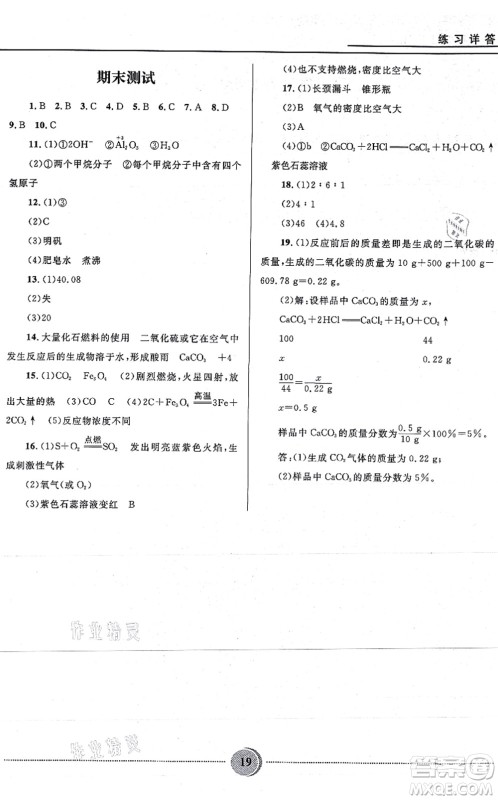 练习详答
期末测试
1.B 2.B 3.C 4.B 5.C 6.A 7.A 8.D
9.B 10.C
11.(1)①2OH⁻ ②Al₂O₃(Al上方标+3) ③H₂O
(2)①两个甲烷分子 ②每个甲烷分子中含有四个
氢原子
12.(1)③
(2)C
(3)明矾
(4)肥皂水 煮沸
13.(1)40.08
(2)失
(3)20
14.大量化石燃料的使用 二氧化硫或在空气中
发生反应后的生成物溶于水,形成酸雨 CaCO₃ +4
15.(1)CO₂ Fe₃O₄ (2)剧烈燃烧,火星四射,
放出大量的热 (3)CO C (4)2C+Fe₃O₄ 高温══ 3Fe+
2CO₂↑ (5)反应物浓度不同
16.(1)S+O₂ 点燃══ SO₂ 发出明亮蓝紫色火焰,生
成刺激性气体
(2)氧气(或O₂)
(3)紫色石蕊溶液变红 B
(4)也不支持燃烧,密度比空气大
17.(1)长颈漏斗 锥形瓶
(2)B 氧气的密度比空气大
(3)A
(4)①b ②CaCO₃+2HCl══CaCl₂+H₂O+CO₂↑
紫色石蕊溶液
18.(1)2∶6∶1
(2)4∶1
(3)46 (4)4.8
19.(1)反应前后的质量差即是生成的二氧化碳
的质量,生成的二氧化碳的质量为10 g+500 g+100 g-
609.78 g=0.22 g。
(2)解:设样品中CaCO₃的质量为x,
CaCO₃+2HCl══CaCl₂+H₂O+CO₂↑
100 44
x 0.22 g
100/x=44/0.22 g
x=0.5 g
样品中CaCO₃的质量分数为0.5 g/10 g×100%=5%。
答:(1)生成CO₂气体的质量为0.22 g;(2)样品中
CaCO₃的质量分数为5%。
作业精灵
作业精灵
19